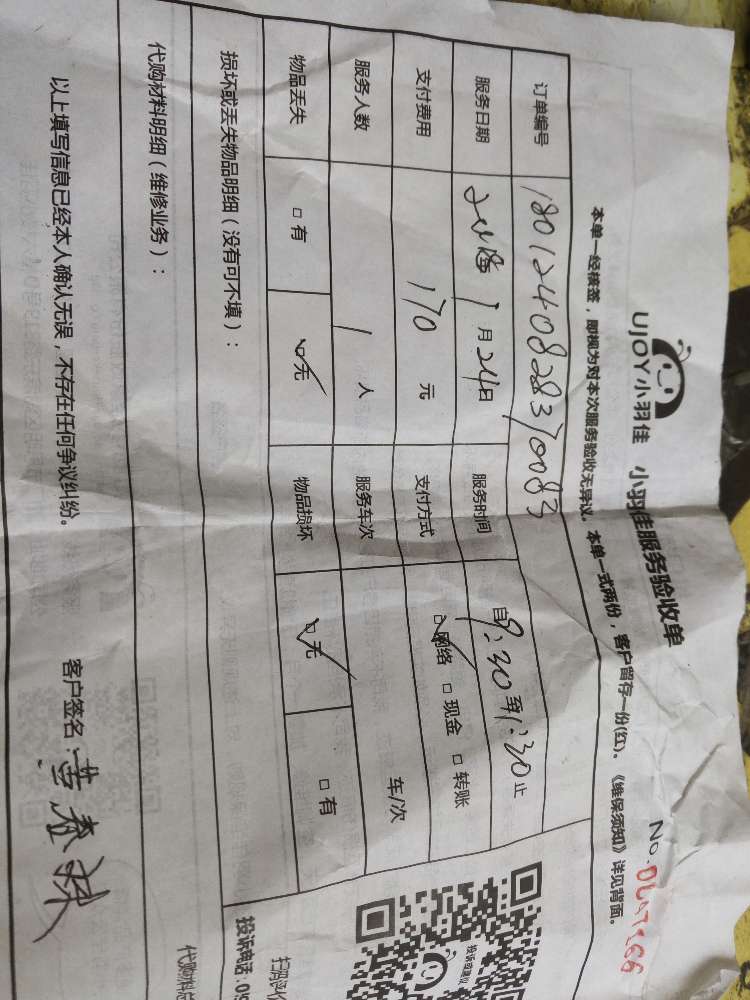 UJOY小羽佳 小羽佳服务验收单
No.
本单一经核签,即视为对本次服务验收无异议。本单一式两份,客户留存一份(红)。《维保须知》详见背面。
订单编号 1801240828370083
服务日期 1月24日 服务时间 自9:30至11:30止
支付费用 170元 支付方式 网络 现金 转账
服务人数 1人 服务车次 车/次
物品丢失 有 无 物品损坏 无 有
损坏或丢失物品明细(没有可不填):
代购材料明细(维修业务):
以上填写信息已经本人确认无误,不存在任何争议纠纷。 客户签名:黄春
投诉电话: